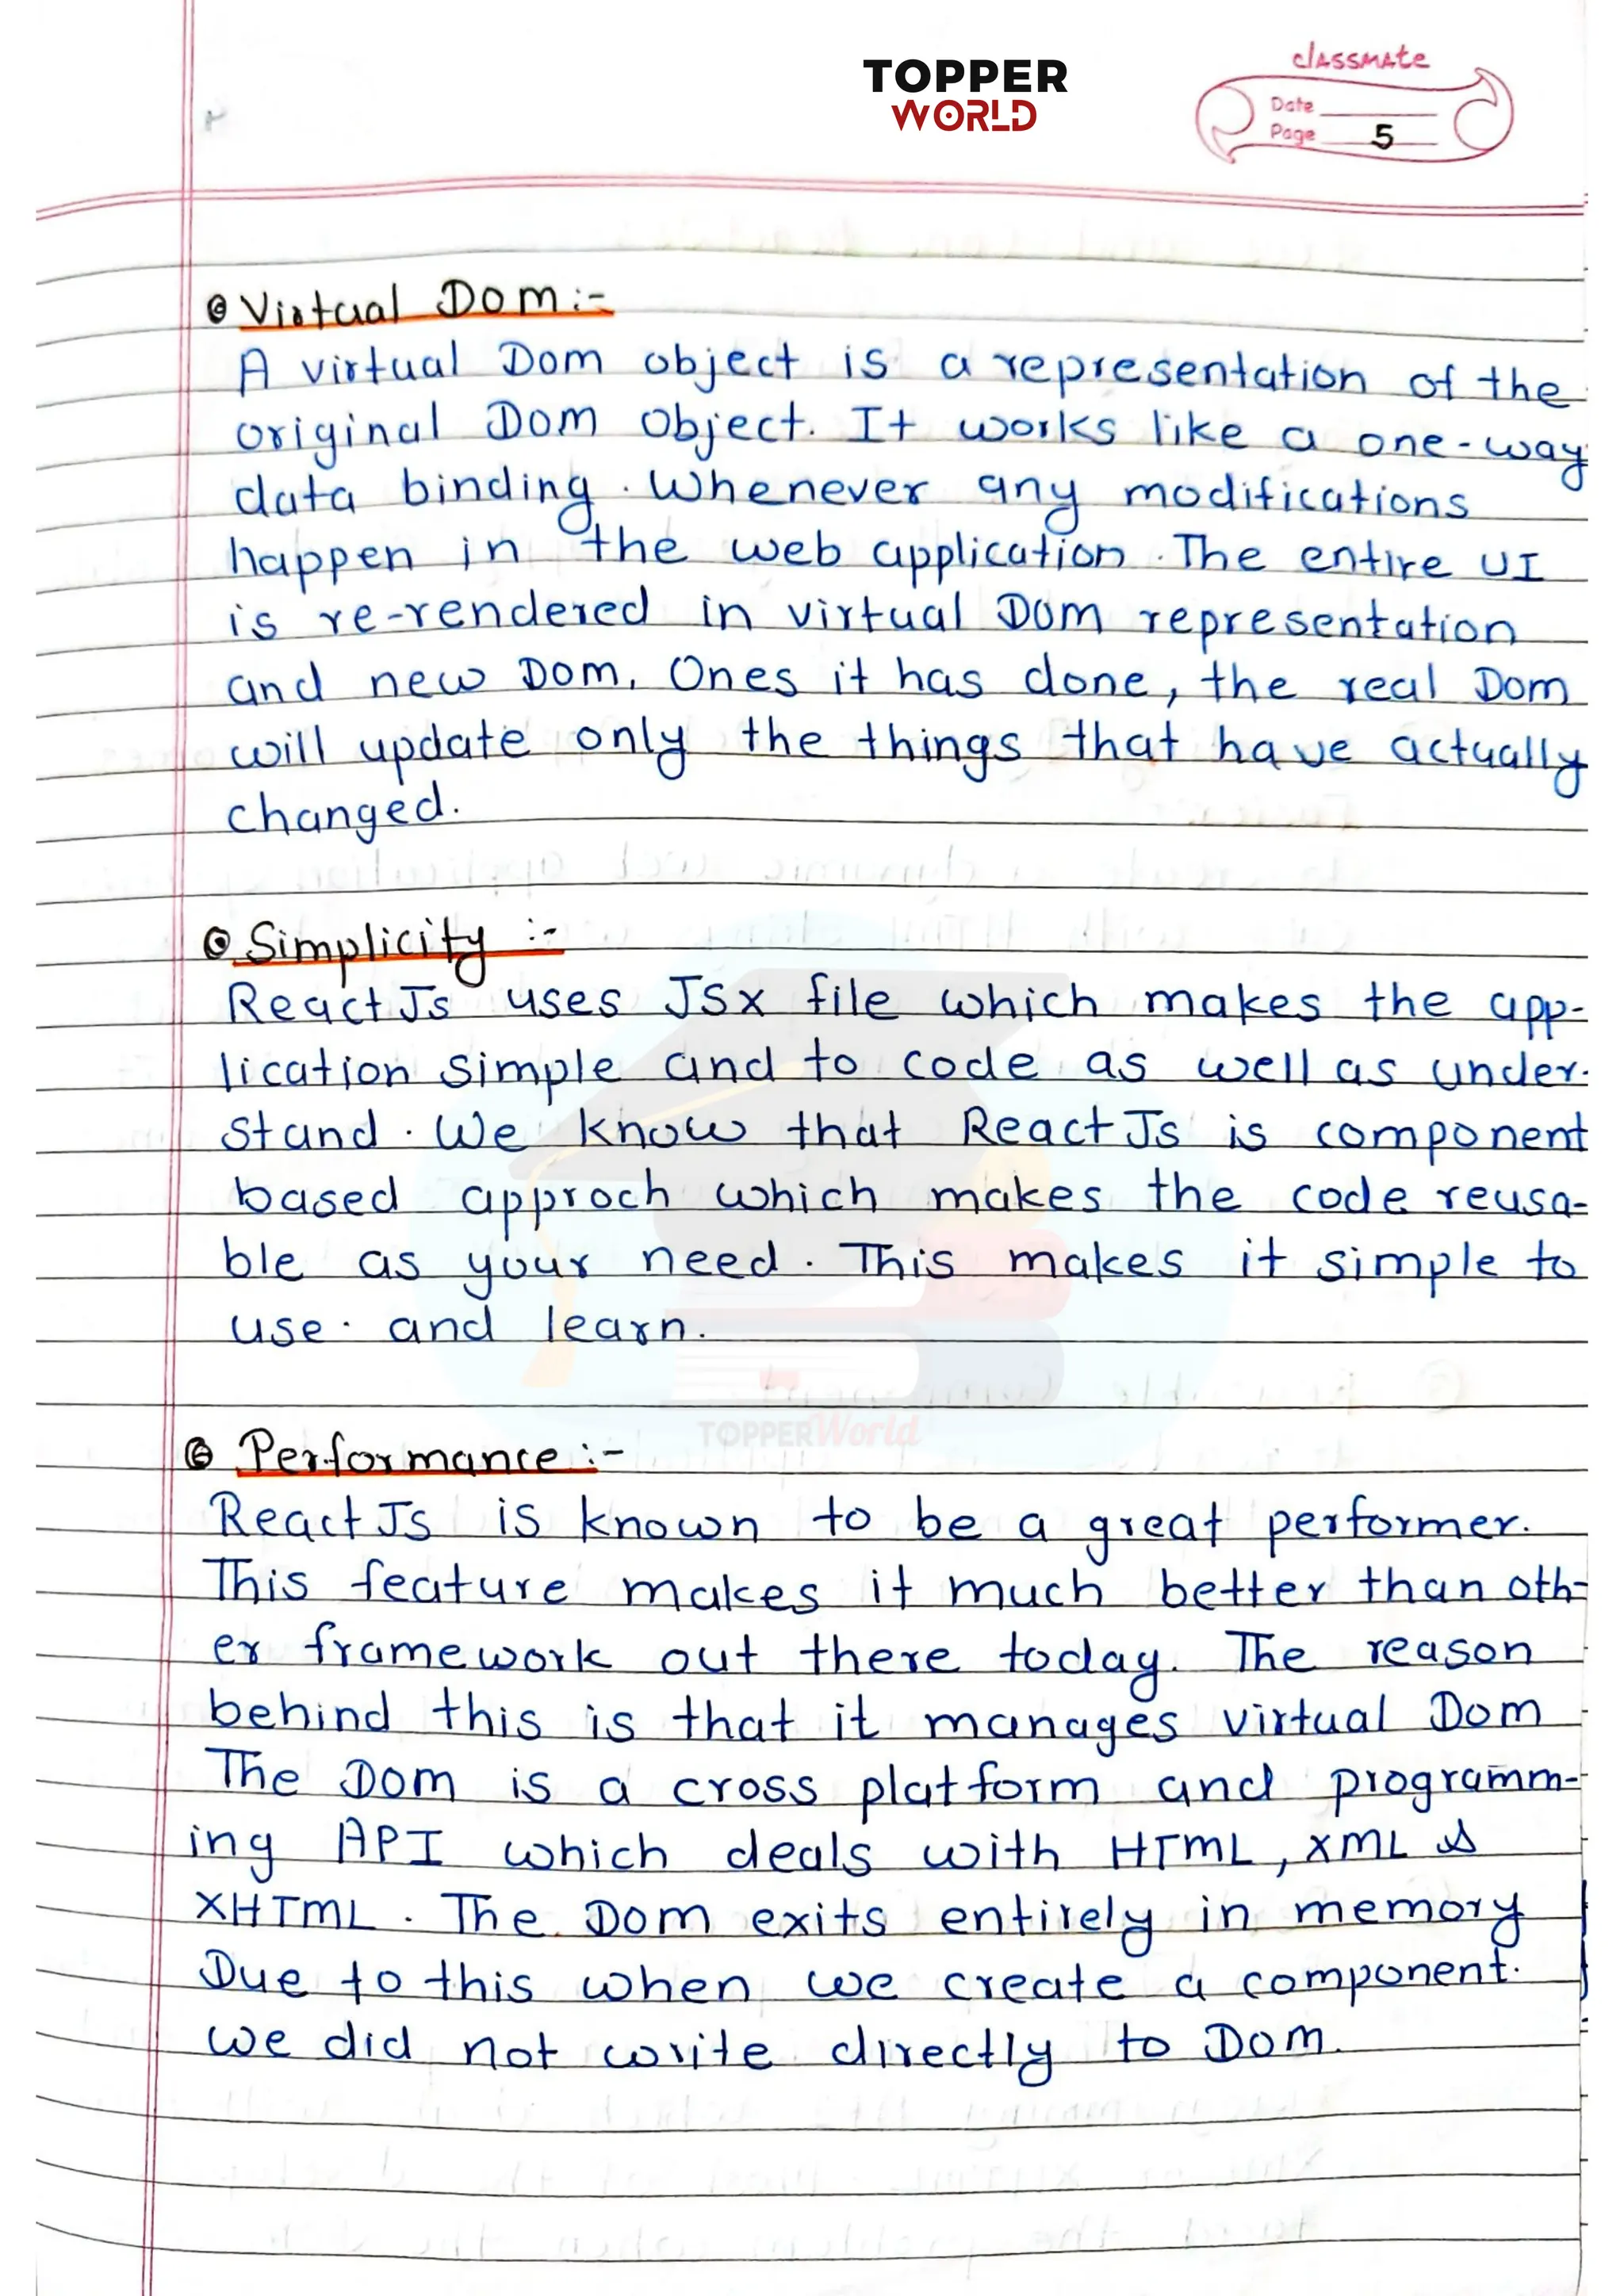 TOPPER
WORLD
classmate
Date
Page 5
Virtual Dom :-
A virtual Dom object is a representation of the
original Dom object. It works like a one-way
data binding. Whenever any modifications
happen in the web application. The entire UI
is re-rendered in virtual Dom representation
and new Dom. Ones it has done, the real Dom
will update only the things that have actually
changed.
Simplicity :-
React Js uses Jsx file which makes the app-
lication simple and to code as well as under-
stand. We know that React Js is component
based approch which makes the code reusa-
ble as your need. This makes it simple to
use. and learn.
TOPPERWorld
Performance :-
React Js is known to be a great performer.
This feature makes it much better than oth-
er framework out there today. The reason
behind this is that it manages virtual Dom
The Dom is a cross platform and programm-
ing API which deals with HTML, XML &
XHTML. The Dom exits entirely in memory
Due to this when we create a component.
we did not write directly to Dom.